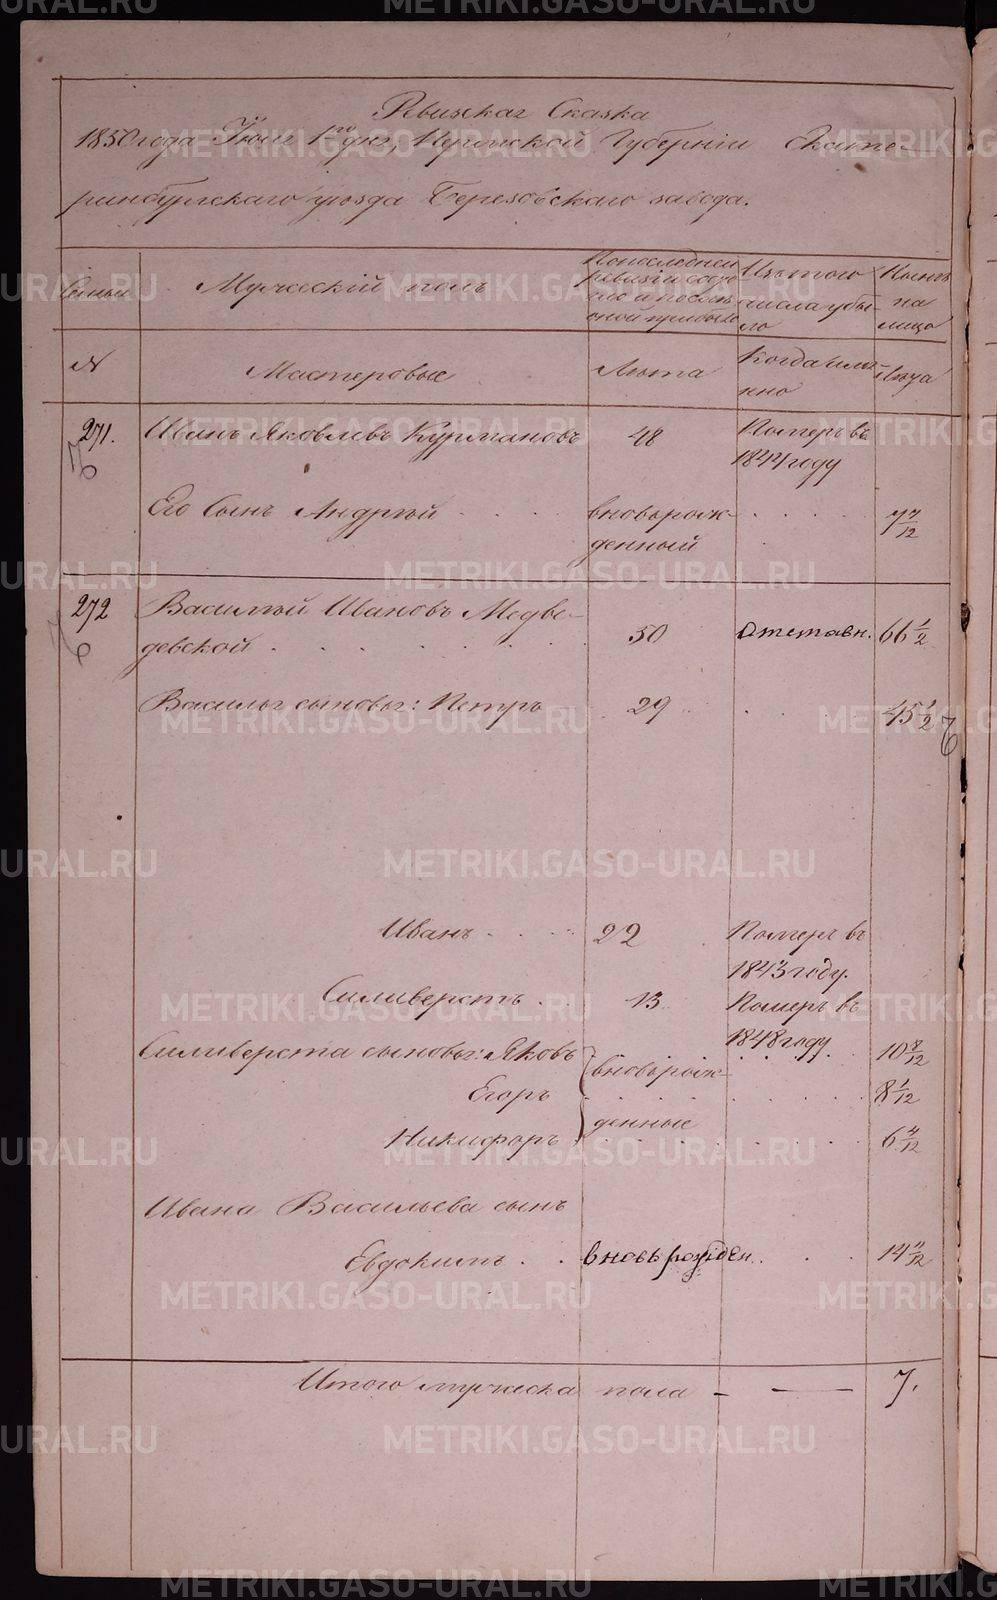 Ревизская Сказка
1850 года Іюня 1го дня, Пермской Губерніи Екате-
ринбургскаго уѣзда Березовскаго завода.
Семьи
Мужескій полъ
По последней ревизіи состо-
яло и после оной прибыло
Изъ того числа убы-
ло
Нынѣ на лицо
№
Мастеровые
Лѣта
Когда имя-
нно
Лѣта
271. Иванъ Яковлевъ Курмановъ 48 Померъ въ
1844 году
Его Сынъ Андрей . . . . вновьрож- . . . . . 7 7/12
денный
272 Василий Ивановъ Медве-
девской . . . . . . 50 Отставн. 66 1/2
Василья сыновья: Петръ 29 . . 45 1/2
Иванъ . . . . 22 Померъ въ
1843 году.
Силиверстъ . 13 Померъ въ
1848 году
Силиверста сыновья: Яковъ вновьрож- . . . . 10 8/12
Егоръ . . . . . . 8 1/12
Никифоръ денные . . . . . . 6 4/12
Ивана Васильева сынъ
Евдокимъ . . вновь рожден. . . . 14 11/12
Итого мужеска пола - — 7.
METRIKI.GASO-URAL.RU